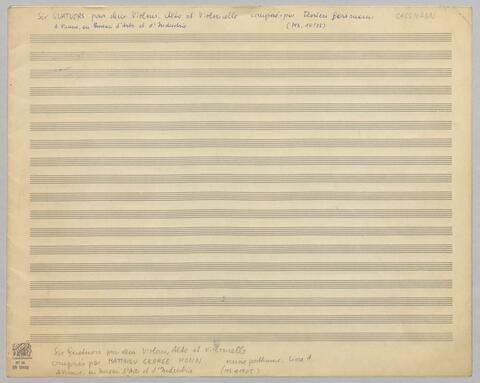 Six QUATUORS pour deux Violons, Alto et Violoncelle composés par Florian Gassmann GASSMANN
à Vienne, au Bureau d'Arts et d'Industrie
Six Quatuors pour deux Violons, Alto et Violoncelle
composés par MATTHIEU GEORGE MONN œuvre posthume, Livre 1
à Vienne, au Bureau d'Arts et d'Industrie